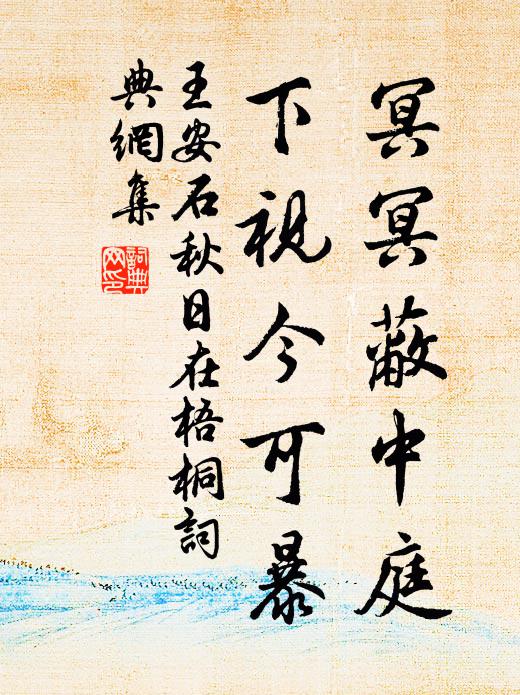 冥冥蔽中庭
下視今可暴
王安石秋日在梧桐詞
典網集
詞典
网印